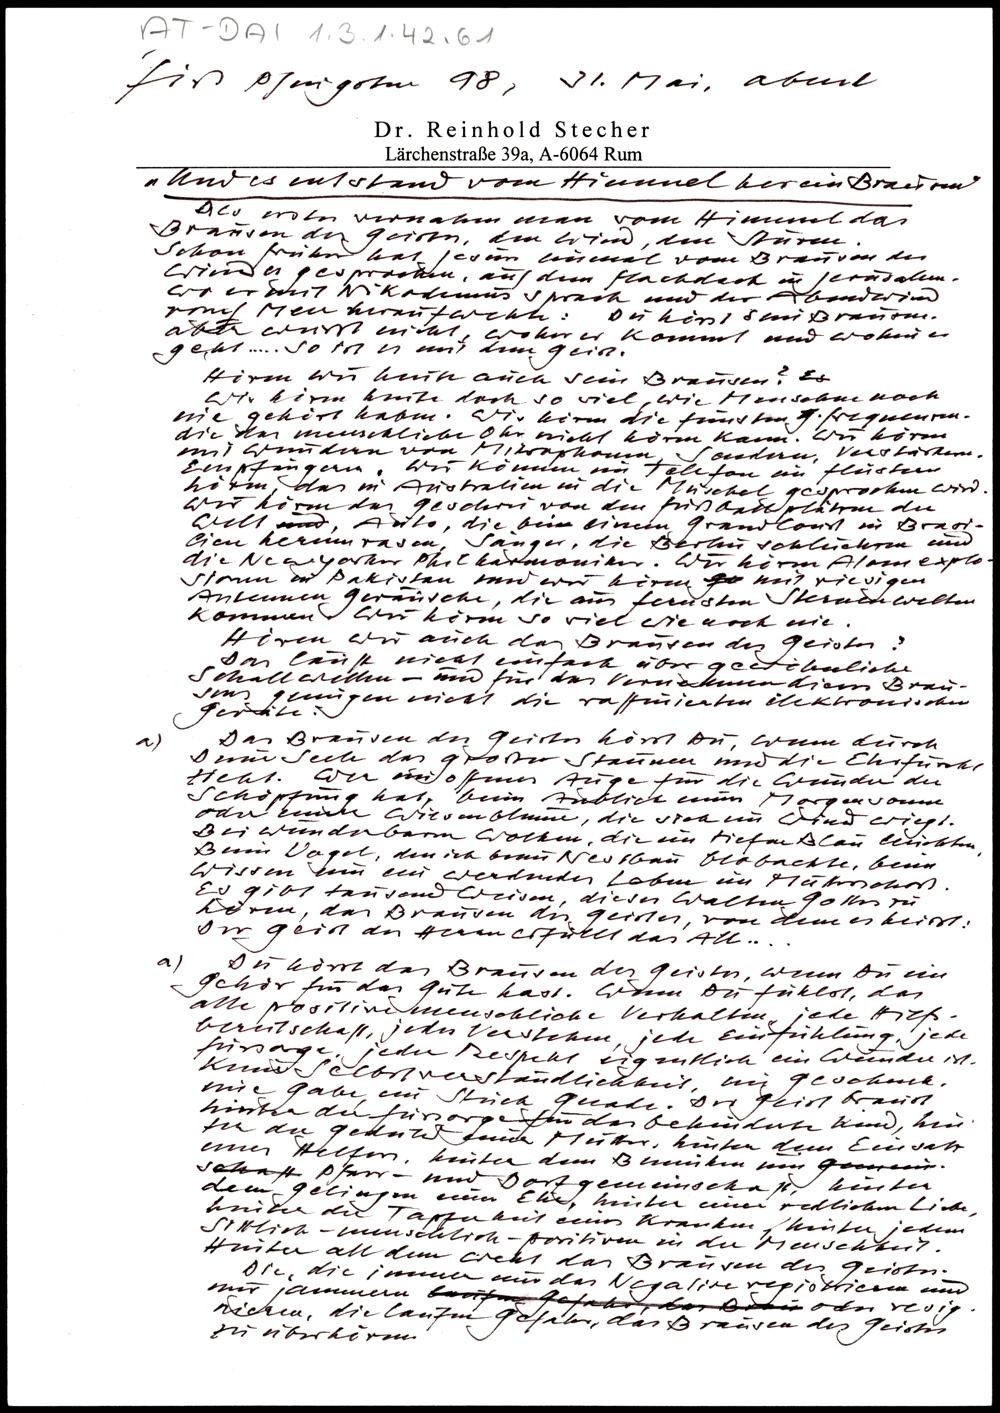 AT-DAI 1.3.1.42.61
fürs Pfingsten 98, 31. Mai, abend
Dr. Reinhold Stecher
Lärchenstraße 39a, A-6064 Rum
"Und es entstand vom Himmel her ein Brausen"
Als erstes vernahm man vom Himmel das
Brausen des Geistes, den Wind, den Sturm.
Schon früher hat Jesus einmal vom Brausen des
Windes gesprochen, auf dem Flachdach in Jerusalem.
wo er mit Nikodemus sprach und der Abendwind
vom Meer heraufwehte: Du hörst sein Brausen.
aber weisst nicht, woher er kommt und wohin er
geht ..... So ist es mit dem Geist.
Hören wir heute auch sein Brausen? Es
Wir hören heute doch so viel, wie Menschen noch
nie gehört haben. Wir hören die feinsten frequenzen.
die das menschliche Ohr nicht hören kann. Wir hören
mit Wundern von Mikrophonen, Sendern, Verstärkern.
Empfängern. Wir können im Telefon ein flüstern
hören, das in Australien in die Muschel gesprochen wird.
Wir hören das Geschrei von den Fußballplätzen der
Welt und, Auto, die beim einem Grand Court in Brasi-
lien herumrasen, Sänger, die Berlin schluchzen und
die New yorker Philharmoniker. Wir hören Atomexplo-
sionen in Pakistan und wir hören mit riesigen
Antennen Geräusche, die aus fernsten Sternenwelten
kommen. Wir hören so viel wie noch nie.
Hören wir auch das Brausen des Geistes?
Das läuft nicht einfach über gewöhnliche
Schallwellen – und für das Vernehmen dieses Brau-
sens genügen nicht die raffiniertesten elektronischen
Geräte.
a) Das Brausen des Geistes hörst Du, wenn durch
Deine Seele das große Staunen und die Ehrfurcht
zieht. Wer ein offenes Auge für die Wunder der
Schöpfung hat, beim Anblick einer Morgensonne
oder einer Wiesenblume, die sich im Wind wiegt.
Bei wunderbaren Wolken, die im tiefen Blau leuchten,
Beim Vogel, den ich beim Nestbau beobachte, beim
Wissen um ein werdendes Leben im Mutterschoß.
Es gibt tausend Weisen, dieses Walten Gottes zu
hören, das Brausen des Geistes, von dem es heisst:
Der Geist des Herrn erfüllt das All....
a) Du hörst das Brausen des Geistes, wenn Du ein
Gehör für das Gute hast. Wenn Du fühlst, das
alle positive menschliche Verhalten, jede Hilfs-
bereitschaft, jedes Verstehen, jede Einfühlung, jede
fürsorge, jeder Respekt eigentlich ein Wunder ist.
Keine Selbstverständlichkeit, ein Geschenk.
eine Gabe, ein Stück Gnade. Der Geist braust
hinter der fürsorge für das behinderte Kind, hin
ter der Geduld einer Mutter, hinter dem Einsatz
eines Helfers, hinter dem Bemühen um Gemein-
schaft Pfarr- und Dorfgemeinschaft, hinter
dem Gelingen einer Ehe, hinter einer redlichen Liebe,
hinter der Tapferkeit eines Kranken, hinter jedem
Sittlich-menschlich-positiven in der Menschheit.
Hinter all dem weht das Brausen des Geistes.
Die, die immer nur das Negative registrieren und
nur jammern laufen Gefahr, das Brau oder resig-
nieren, die laufen Gefahr, das Brausen des Geistes
zu überhören